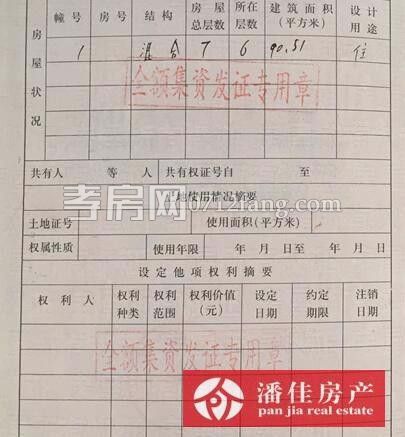 房屋状况
幢号 房号 结构 房屋总层数 所在层数 建筑面积(平方米) 设计用途
1 混合 7 6 90.51 住
全额集资发证专用章
共有人 等 人 共有权证号自 至
土地使用情况摘要
孝房网0712fang.com
土地证号 使用面积(平方米)
权属性质 使用年限 年 月 日至 年 月 日
设定他项权利摘要
权利人 权利种类 权利范围 权利价值(元) 设定日期 约定期限 注销日期
全额集资发证专用章
潘佳房产
pan jia real estate